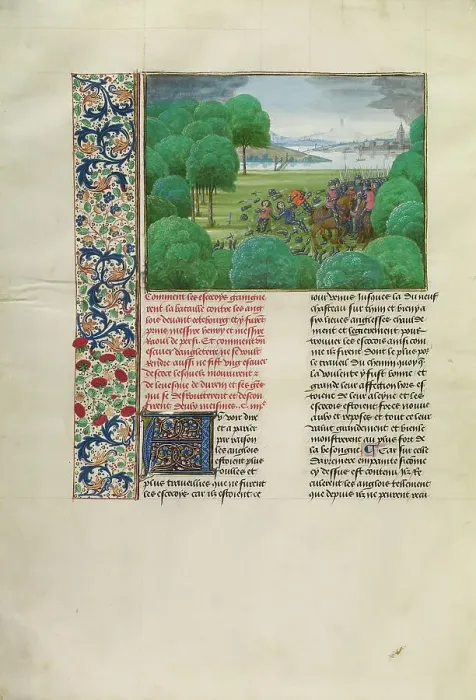 Comment les escocois gaingne
rent la bataille contre les ang
lois devant octebourg et y furet
prins messire henry et messire
raoul de persi. Et comment un
escuier dangleterre ne se voult
rendre aussi ne fist ung escuier
descoce lesquelz moururent z
de levesque de durem et ses gens
qui se desconfirent et descon
firent deulx mesmes.
voir dire
et a parler
par raison
les anglois
estoient plus
foulles et
plus travaillies que ne fussent
les escocois car ilz estoient ce
jour venus jusques la du neuf
chastel sur thin et bien a
six lieues anglesses chaude
ment et legierement pour
trouver les escocois ainsi com
me ilz firent dont le plus par
le travail du chemin quoy que
la voulente y fust bonne et
grande leur affection hors es
toient de leur alayne et les
escocois estoient frecz nouve
aulx et reposes et tout ce leur
valut grandement et bien le
monstrerent au plus fort de
la besongne Car sur celle
derreniere empainte sicome
cy dessus est contenu ilz re
culerent les anglois tellement
que depuis ilz ne peurent reca